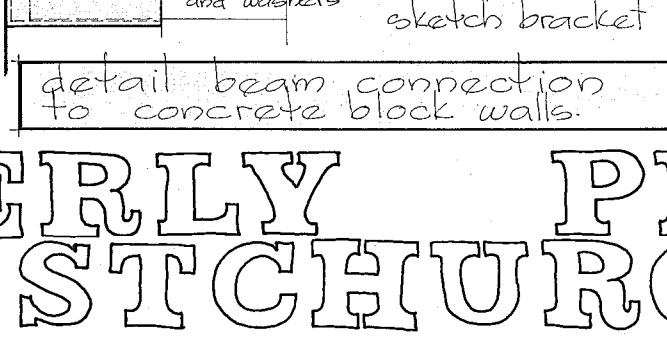 and washers
sketch bracket
detail beam connection
to concrete block walls.
ERLY P
STCHUR